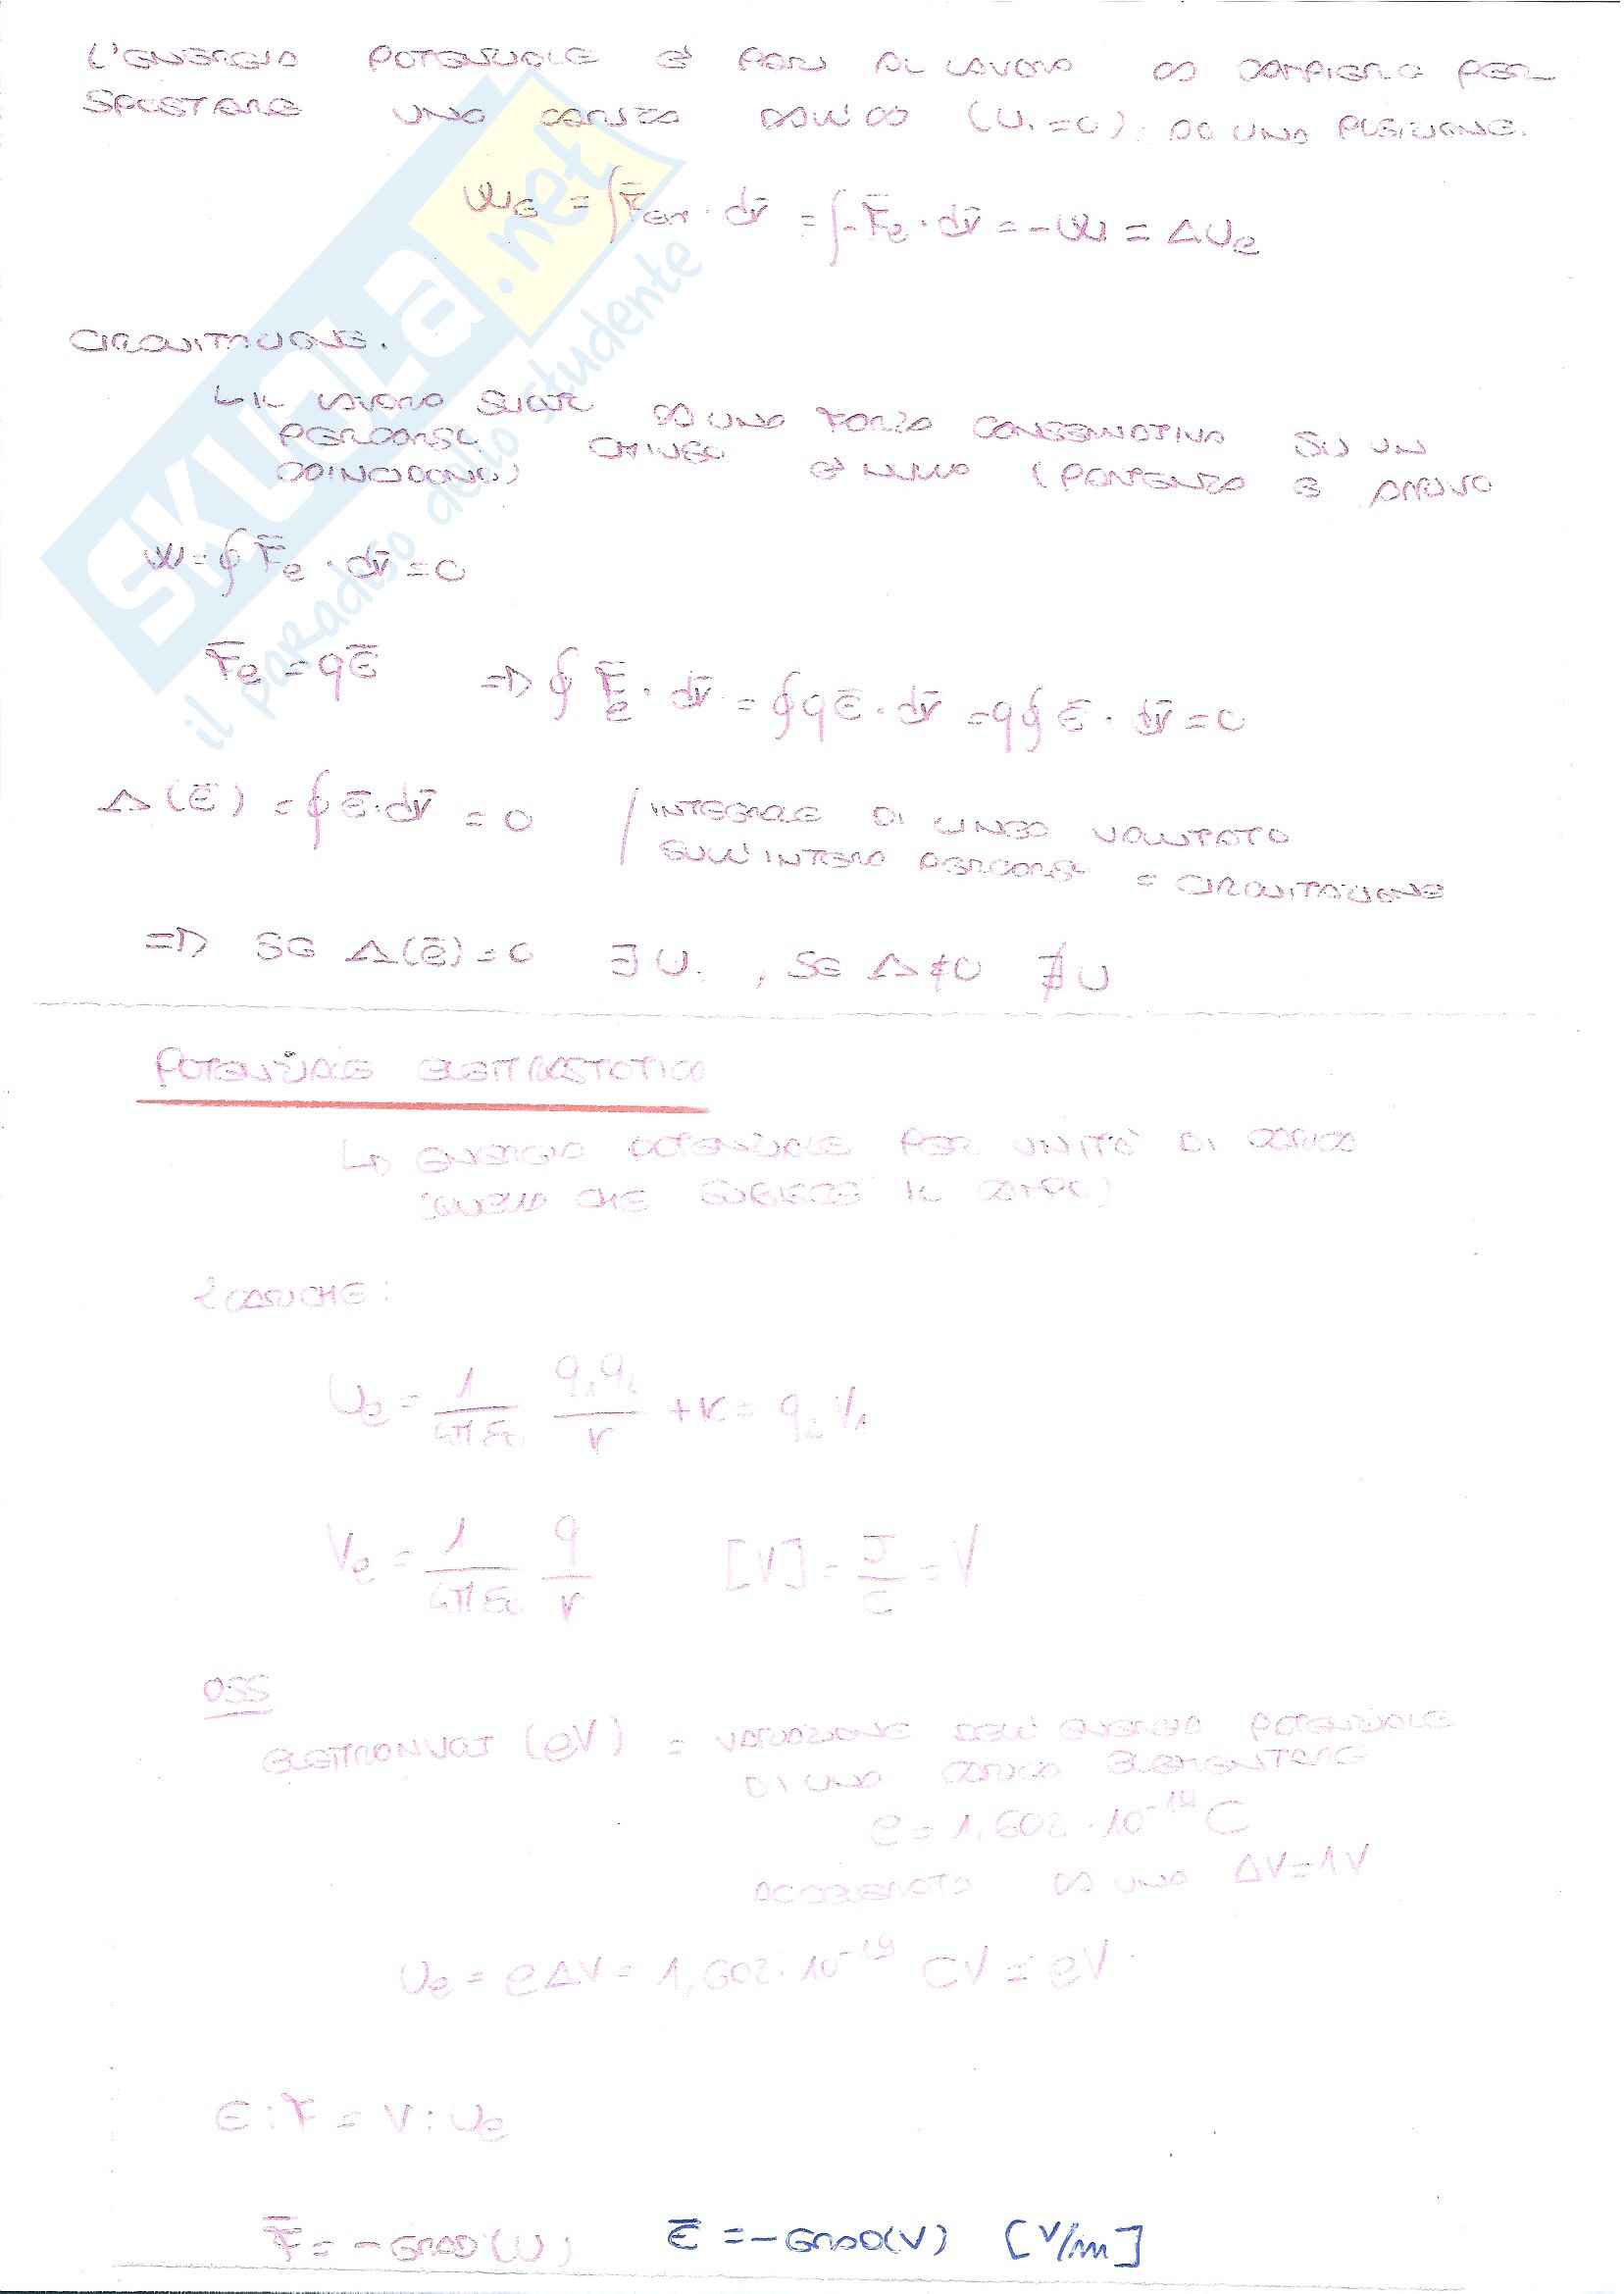 L'ENERGIA POTENZIALE È PARI AL LAVORO DA COMPIERE PER
SPOSTARE UNA CARICA DALL'∞ (U₁=0) AD UNA POSIZIONE.
W_E = ∫F̄_est · dr̄ = ∫-F̄_e · dr̄ = -W = ΔU_e
CIRCUITAZIONE.
↳ IL LAVORO SVOLTO DA UNA FORZA CONSERVATIVA SU UN
PERCORSO CHIUSO È NULLO (PARTENZA E ARRIVO
COINCIDONO)
W = ∮ F̄_e · dr̄ = 0
F̄_e = qĒ => ∮ F̄_e · dr̄ = ∮ qĒ · dr̄ = q∮ Ē · dr̄ = 0
Δ(Ē) = ∮ Ē · dr̄ = 0 / INTEGRALE DI LINEA VALUTATO
SULL'INTERO PERCORSO = CIRCUITAZIONE
=> SE Δ(Ē)=0 ∃ U. , SE Δ≠0 ∄ U
POTENZIALE ELETTROSTATICO
↳ ENERGIA POTENZIALE PER UNITÀ DI CARICA
(QUELLA CHE SUBISCE IL CAMPO)
2 CARICHE:
U_e = 1/4πε₀ q₁q₂/r + K = q₂ V₁
V_e = 1/4πε₀ q/r [V] = J/C = V
OSS
ELETTRONVOLT (eV) = VARIAZIONE DELL'ENERGIA POTENZIALE
DI UNA CARICA ELEMENTARE
e = 1,602 · 10⁻¹⁹ C
ACCELERATA DA UNA ΔV=1V
U_e = eΔV = 1,602 · 10⁻¹⁹ CV = eV
E : F = V : U_e
F̄ = -GRAD(U) ; Ē = -GRAD(V) [V/m]
SKUOLa.net
il paradiso dello studente